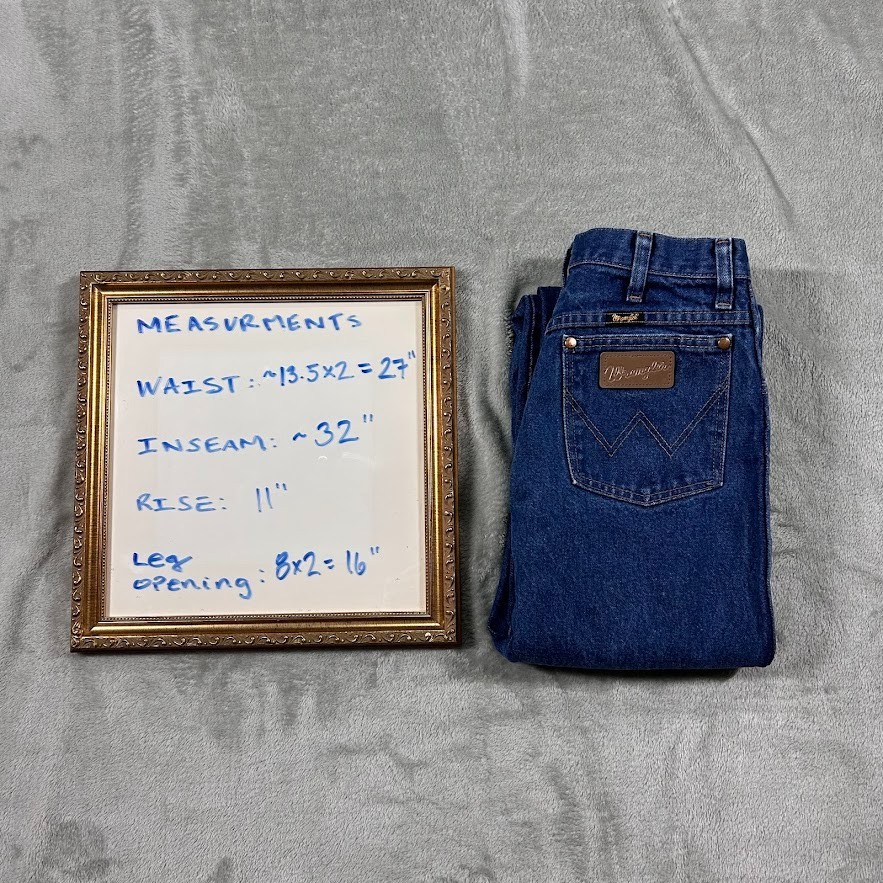 MEASURMENTS
WAIST: ~13.5x2 = 27"
INSEAM: ~ 32"
RISE: 11"
Leg
opening: 8x2 = 16"
Wrangler
Wrangler